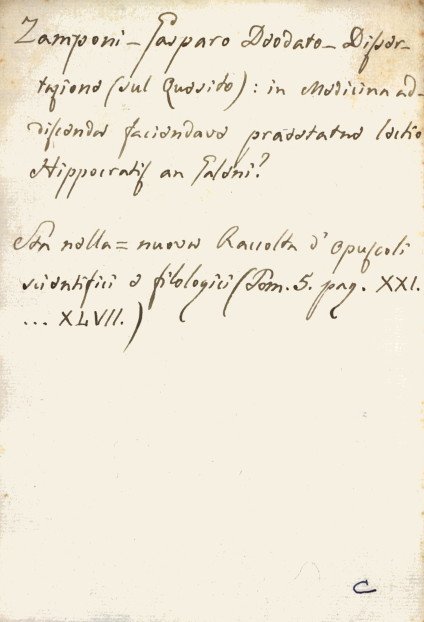 Zamponi – Gasparo Deodato – Disser-
tazione (sul Quesito): in Medicina ad-
discenda facienda ve praestat ne lectio
Hippocratis an Galeni?
Sta nella = nuova Raccolta d' opuscoli
scientifici e filologici (Tom. 5. pag. XXI.
... XLVII.)
C